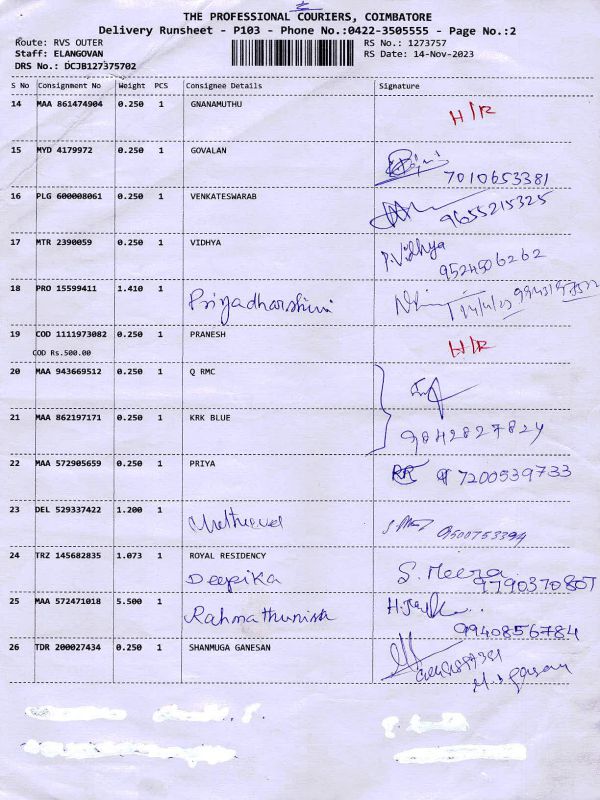 THE PROFESSIONAL COURIERS, COIMBATORE
Delivery Runsheet - P103 - Phone No.:0422-3505555 - Page No.:2
Route: RVS OUTER RS No.: 1273757
Staff: ELANGOVAN RS Date: 14-Nov-2023
DRS No.: DCJB127375702
S No Consignment No Weight PCS Consignee Details Signature
14 MAA 861474904 0.250 1 GNANAMUTHU H/R
15 MYD 4179972 0.250 1 GOVALAN
7010653381
16 PLG 600008061 0.250 1 VENKATESWARAB
9655215325
17 MTR 2390059 0.250 1 VIDHYA P.Vidhya
9524506262
18 PRO 15599411 1.410 1
Priyadharshini 14/11/23
19 COD 1111973082 0.250 1 PRANESH H/R
COD Rs.500.00
20 MAA 943669512 0.250 1 Q RMC
21 MAA 862197171 0.250 1 KRK BLUE
9842827824
22 MAA 572905659 0.250 1 PRIYA
RR 7200539733
23 DEL 529337422 1.200 1
9500753394
24 TRZ 145682835 1.073 1 ROYAL RESIDENCY
Deepika S. Meera 9790370807
25 MAA 572471018 5.500 1
Rahmathunisa 9940856784
26 TDR 200027434 0.250 1 SHANMUGA GANESAN